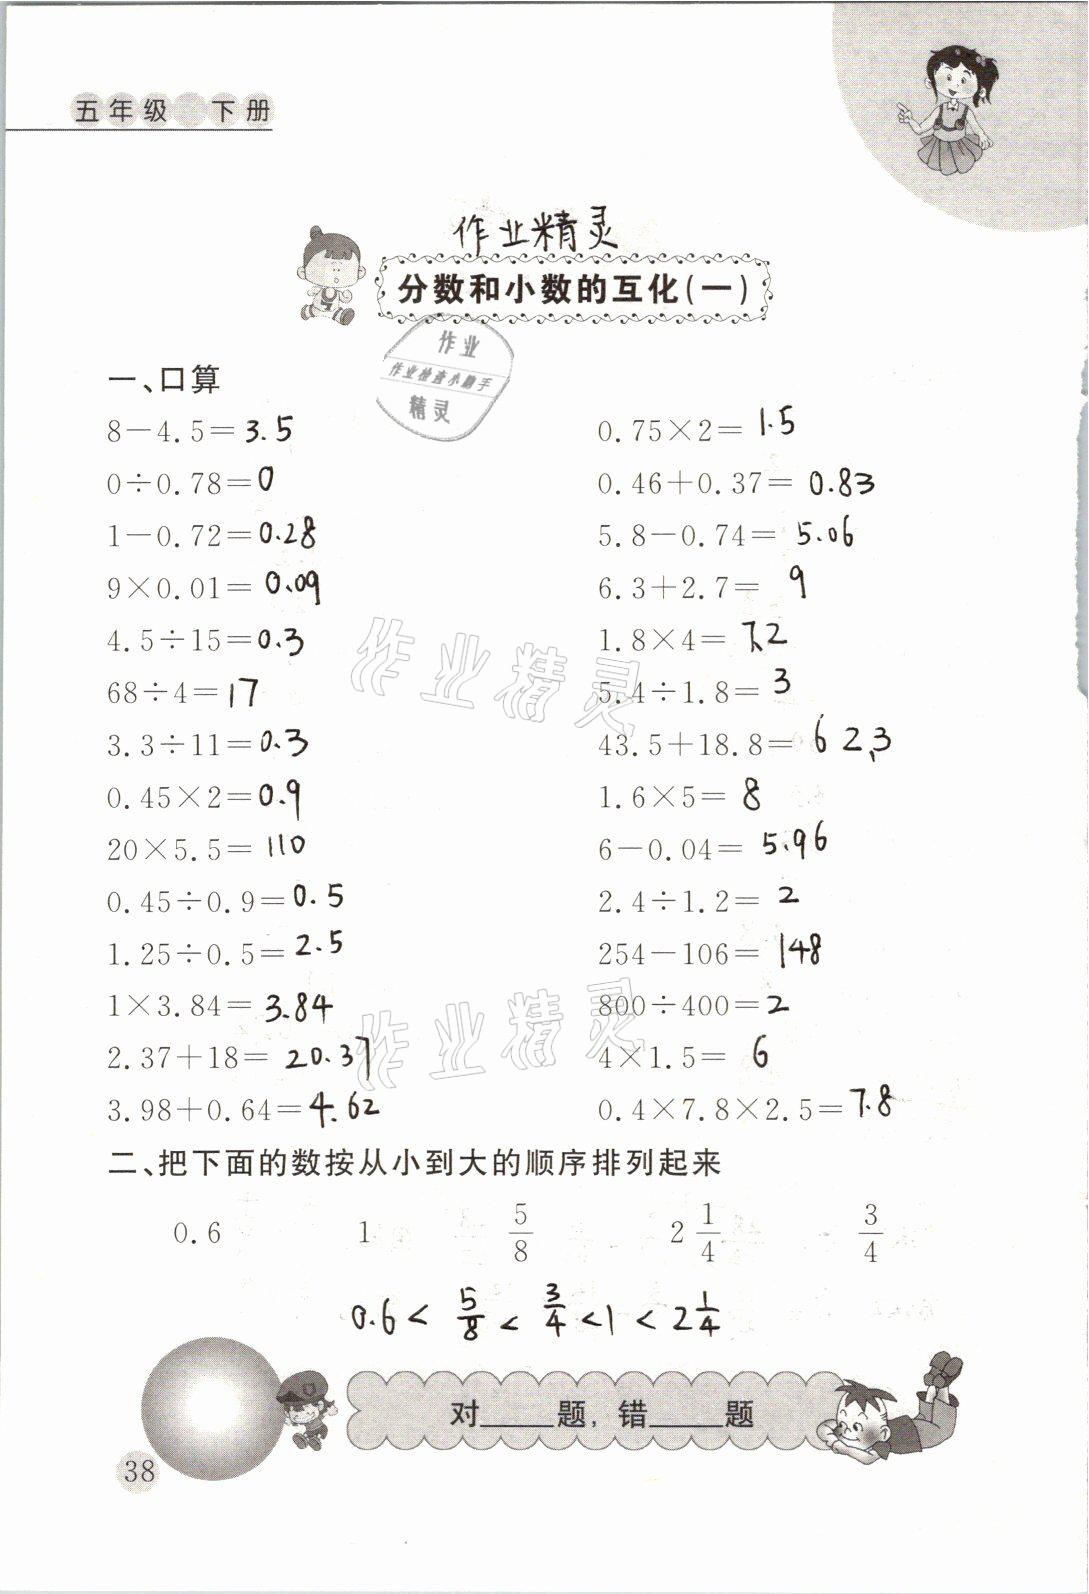 五年级 下册
作业精灵
分数和小数的互化(一)
作业
作业检查小助手
精灵
一、口算
8－4.5＝3.5 0.75×2＝1.5
0÷0.78＝0 0.46＋0.37＝0.83
1－0.72＝0.28 5.8－0.74＝5.06
9×0.01＝0.09 6.3＋2.7＝9
4.5÷15＝0.3 1.8×4＝7.2
68÷4＝17 5.4÷1.8＝3
3.3÷11＝0.3 43.5＋18.8＝62.3
0.45×2＝0.9 1.6×5＝8
20×5.5＝110 6－0.04＝5.96
0.45÷0.9＝0.5 2.4÷1.2＝2
1.25÷0.5＝2.5 254－106＝148
1×3.84＝3.84 800÷400＝2
2.37＋18＝20.37 4×1.5＝6
3.98＋0.64＝4.62 0.4×7.8×2.5＝7.8
作业精灵
作业精灵
二、把下面的数按从小到大的顺序排列起来
0.6 1 5/8 2 1/4 3/4
0.6 < 5/8 < 3/4 < 1 < 2 1/4
对____题，错____题
38